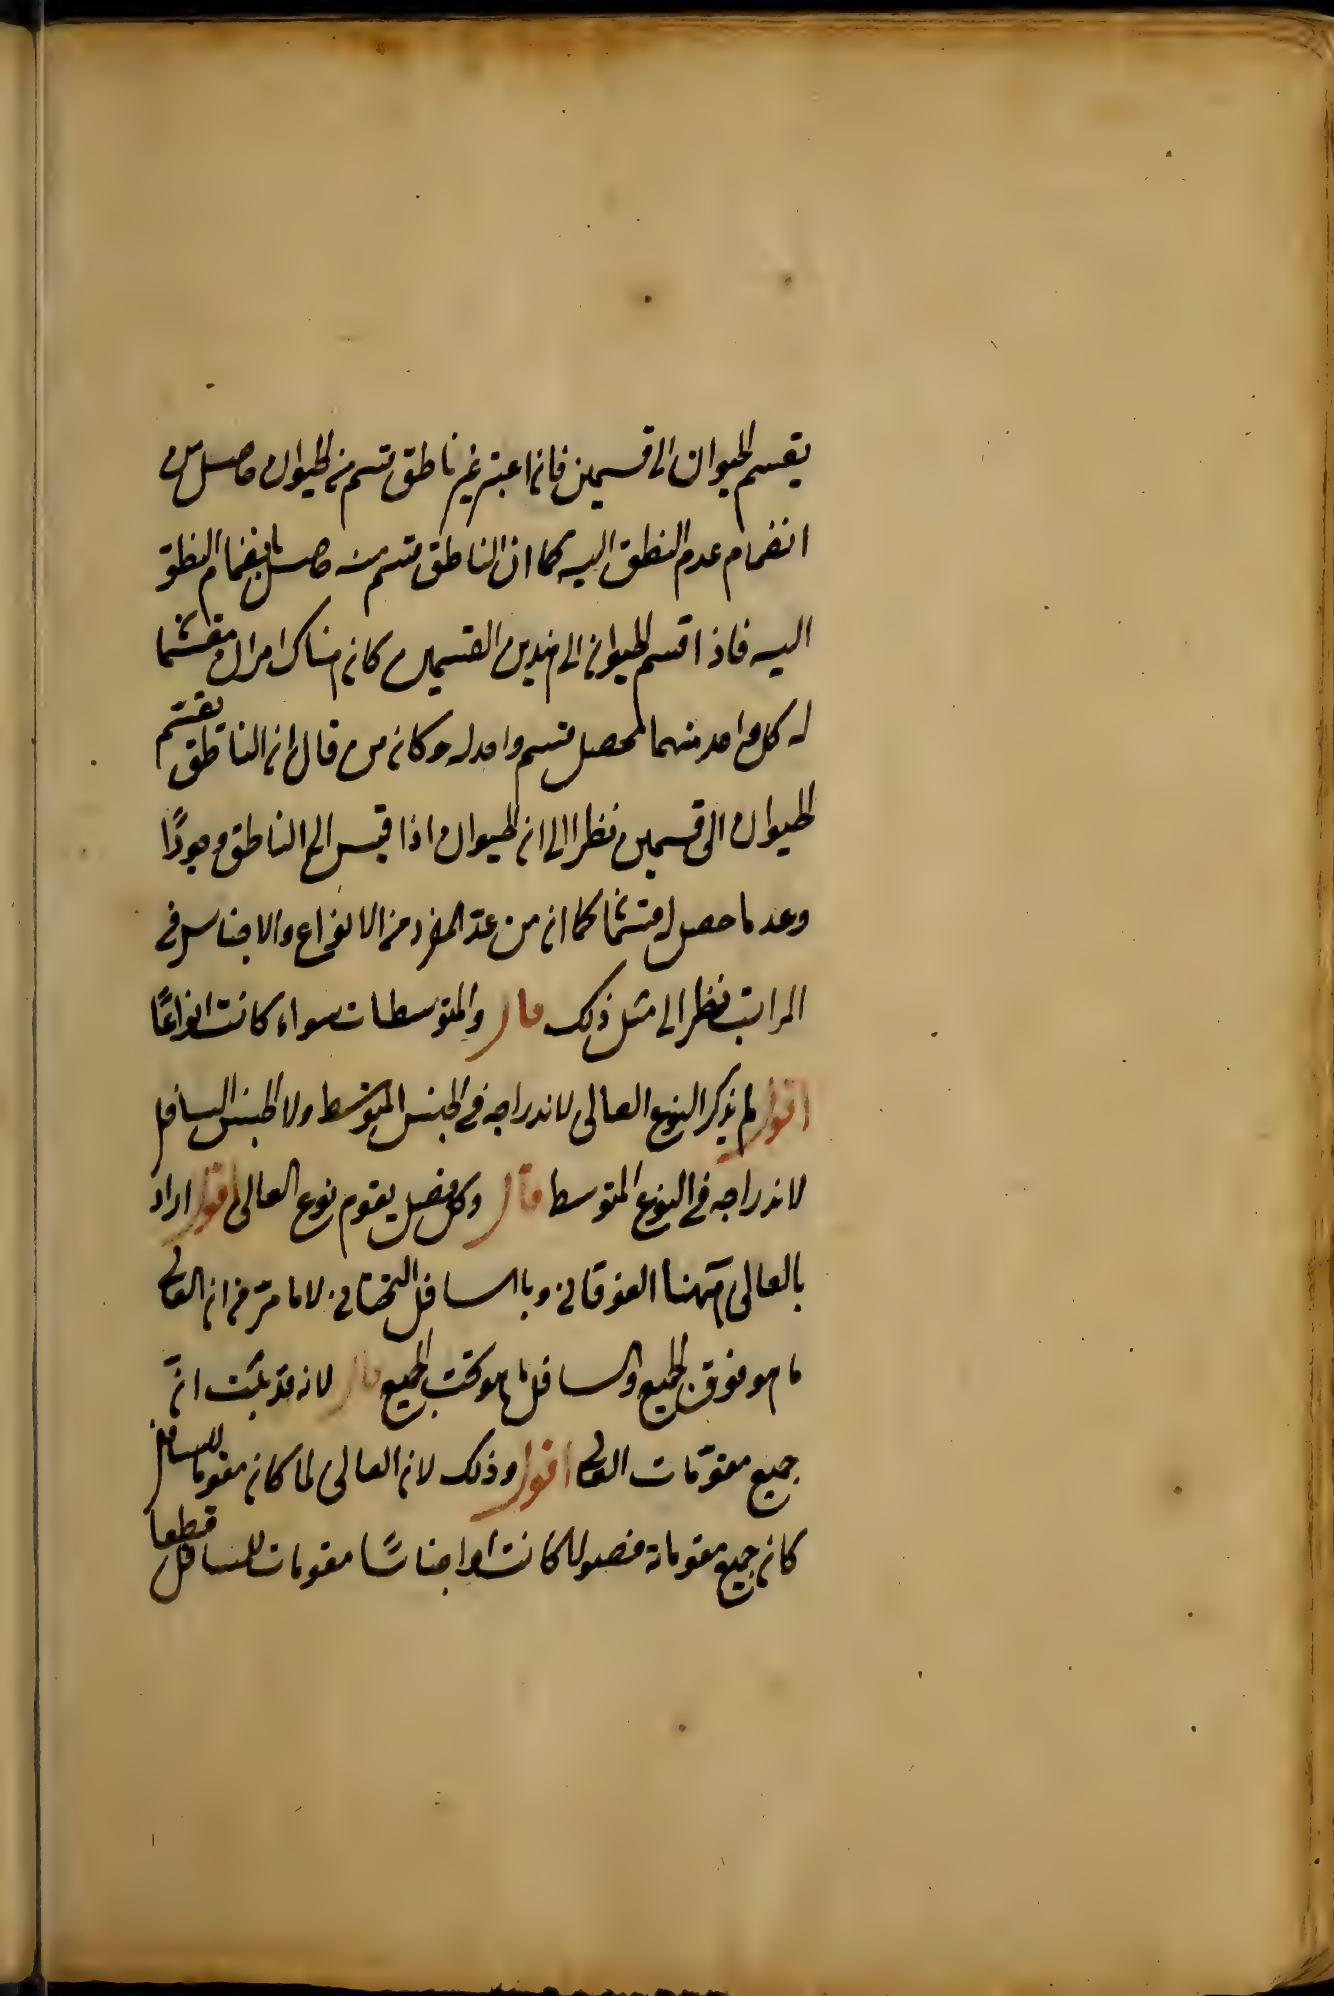 يقسم الحيوان الى قسمين فان اعتبر غير ناطق قسم من الحيوان حاصل من
انضمام عدم النطق اليه كما ان الناطق قسم منه حاصل بانضمام النطق
اليه فاذا قسم الحيوان الى هذين القسمين كان هناك امران مقسمان
له كل واحد منهما محصل قسم واحد له وكان من قال ان الناطق يقسم
الحيوان الى قسمين نظر الى ان الحيوان اذا قيس الى الناطق وجودًا
وعدما حصل له قسمان كما ان من عدّ المفرد من الانواع والاجناس في
المراتب نظر الى مثل ذلك قال والمتوسطات سواء كانت انواعًا
اقول لم يذكر النوع العالى لاندراجه في الجنس المتوسط ولا الجنس السافل
لاندراجه في النوع المتوسط قال وكل فصل يقوم نوع العالى اقول اراد
بالعالى ههنا الفوقانى وبالسافل التحتانى لا ما مرّ من ان العالى
ما هو فوق الجميع والسافل ما هو تحت الجميع قال لانه قد ثبت انّ
جميع مقوّمات العالى اقول وذلك لان العالى لما كان مقوما للسافل
كان جميع مقوماته فصولا كانت او اجناسًا مقومات للسافل قطعا